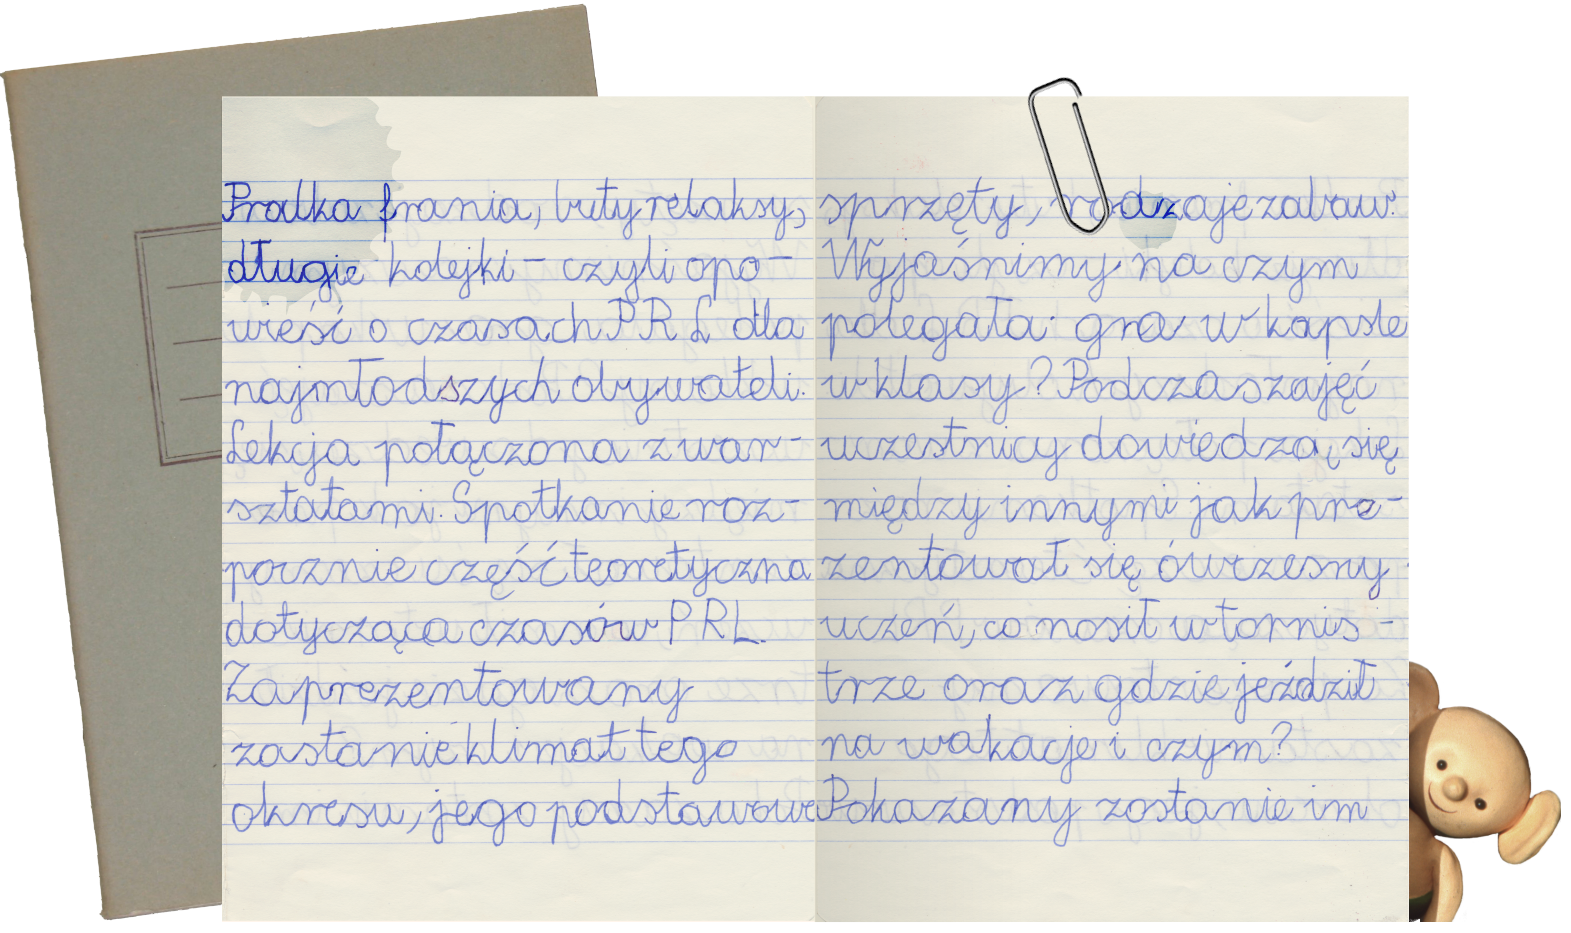 Pralka frania, buty relaksy,
długie kolejki – czyli opo-
wieść o czasach PRL dla
najmłodszych obywateli.
Lekcja połączona z war-
sztatami. Spotkanie roz-
pocznie część teoretyczna
dotycząca czasów PRL.
Zaprezentowany
zostanie klimat tego
okresu, jego podstawowe
sprzęty, rodzaje zabaw.
Wyjaśnimy na czym
polegała gra w kapsle
w klasy? Podczas zajęć
uczestnicy dowiedzą się
między innymi jak pre-
zentował się ówczesny
uczeń, co nosił w tornis-
trze oraz gdzie jeździł
na wakacje i czym?
Pokazany zostanie im